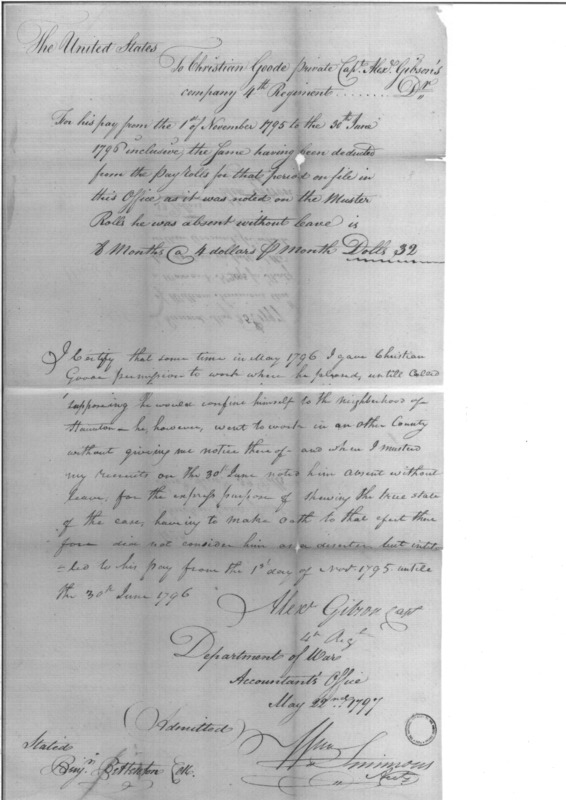 The United States
To Christian Goode private Capt. Alexr. Gibson's
company 4th Regiment ........ Dr
For his pay from the 1st of November 1795 to the 30th June
1796 inclusive, the same having been deducted
from the pay rolls for that period on file in
this Office, as it was noted on the Muster
Rolls he was absent without leave is
8 Months @ 4 dollars ⅌ Month Dolls 32
I Certify that some time in May 1796 I gave Christian
Goode permission to work where he pleased, untill Called
supposing he would confine himself to the neighborhood of
he, however, went to work in an other County
without giving me notice thereof and when I mustered
my recruits on the 30th June noted him absent without
leave, for the express purpose of shewing the true state
of the case, having to make oath to that efect there
fore did not consider him as a deserter but intit
=led to his pay from the 1st day of Novr. 1795 untill
the 30th June 1796
Alexr Gibson Capt
4th Regt
Department of War
Accountant's Office
May 22nd. 1797
(Admitted)
Wm Simmons
Actt
Stated
Benjn. Clk.